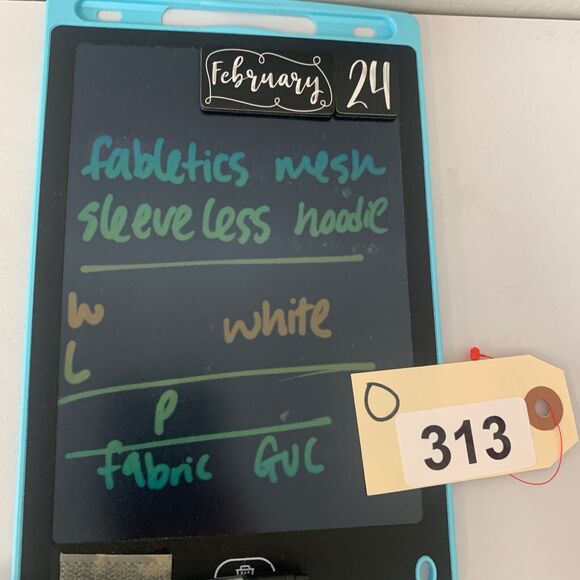 February 24
fabletics mesh
sleeveless hoodie
W white
L
P
fabric GUC
313